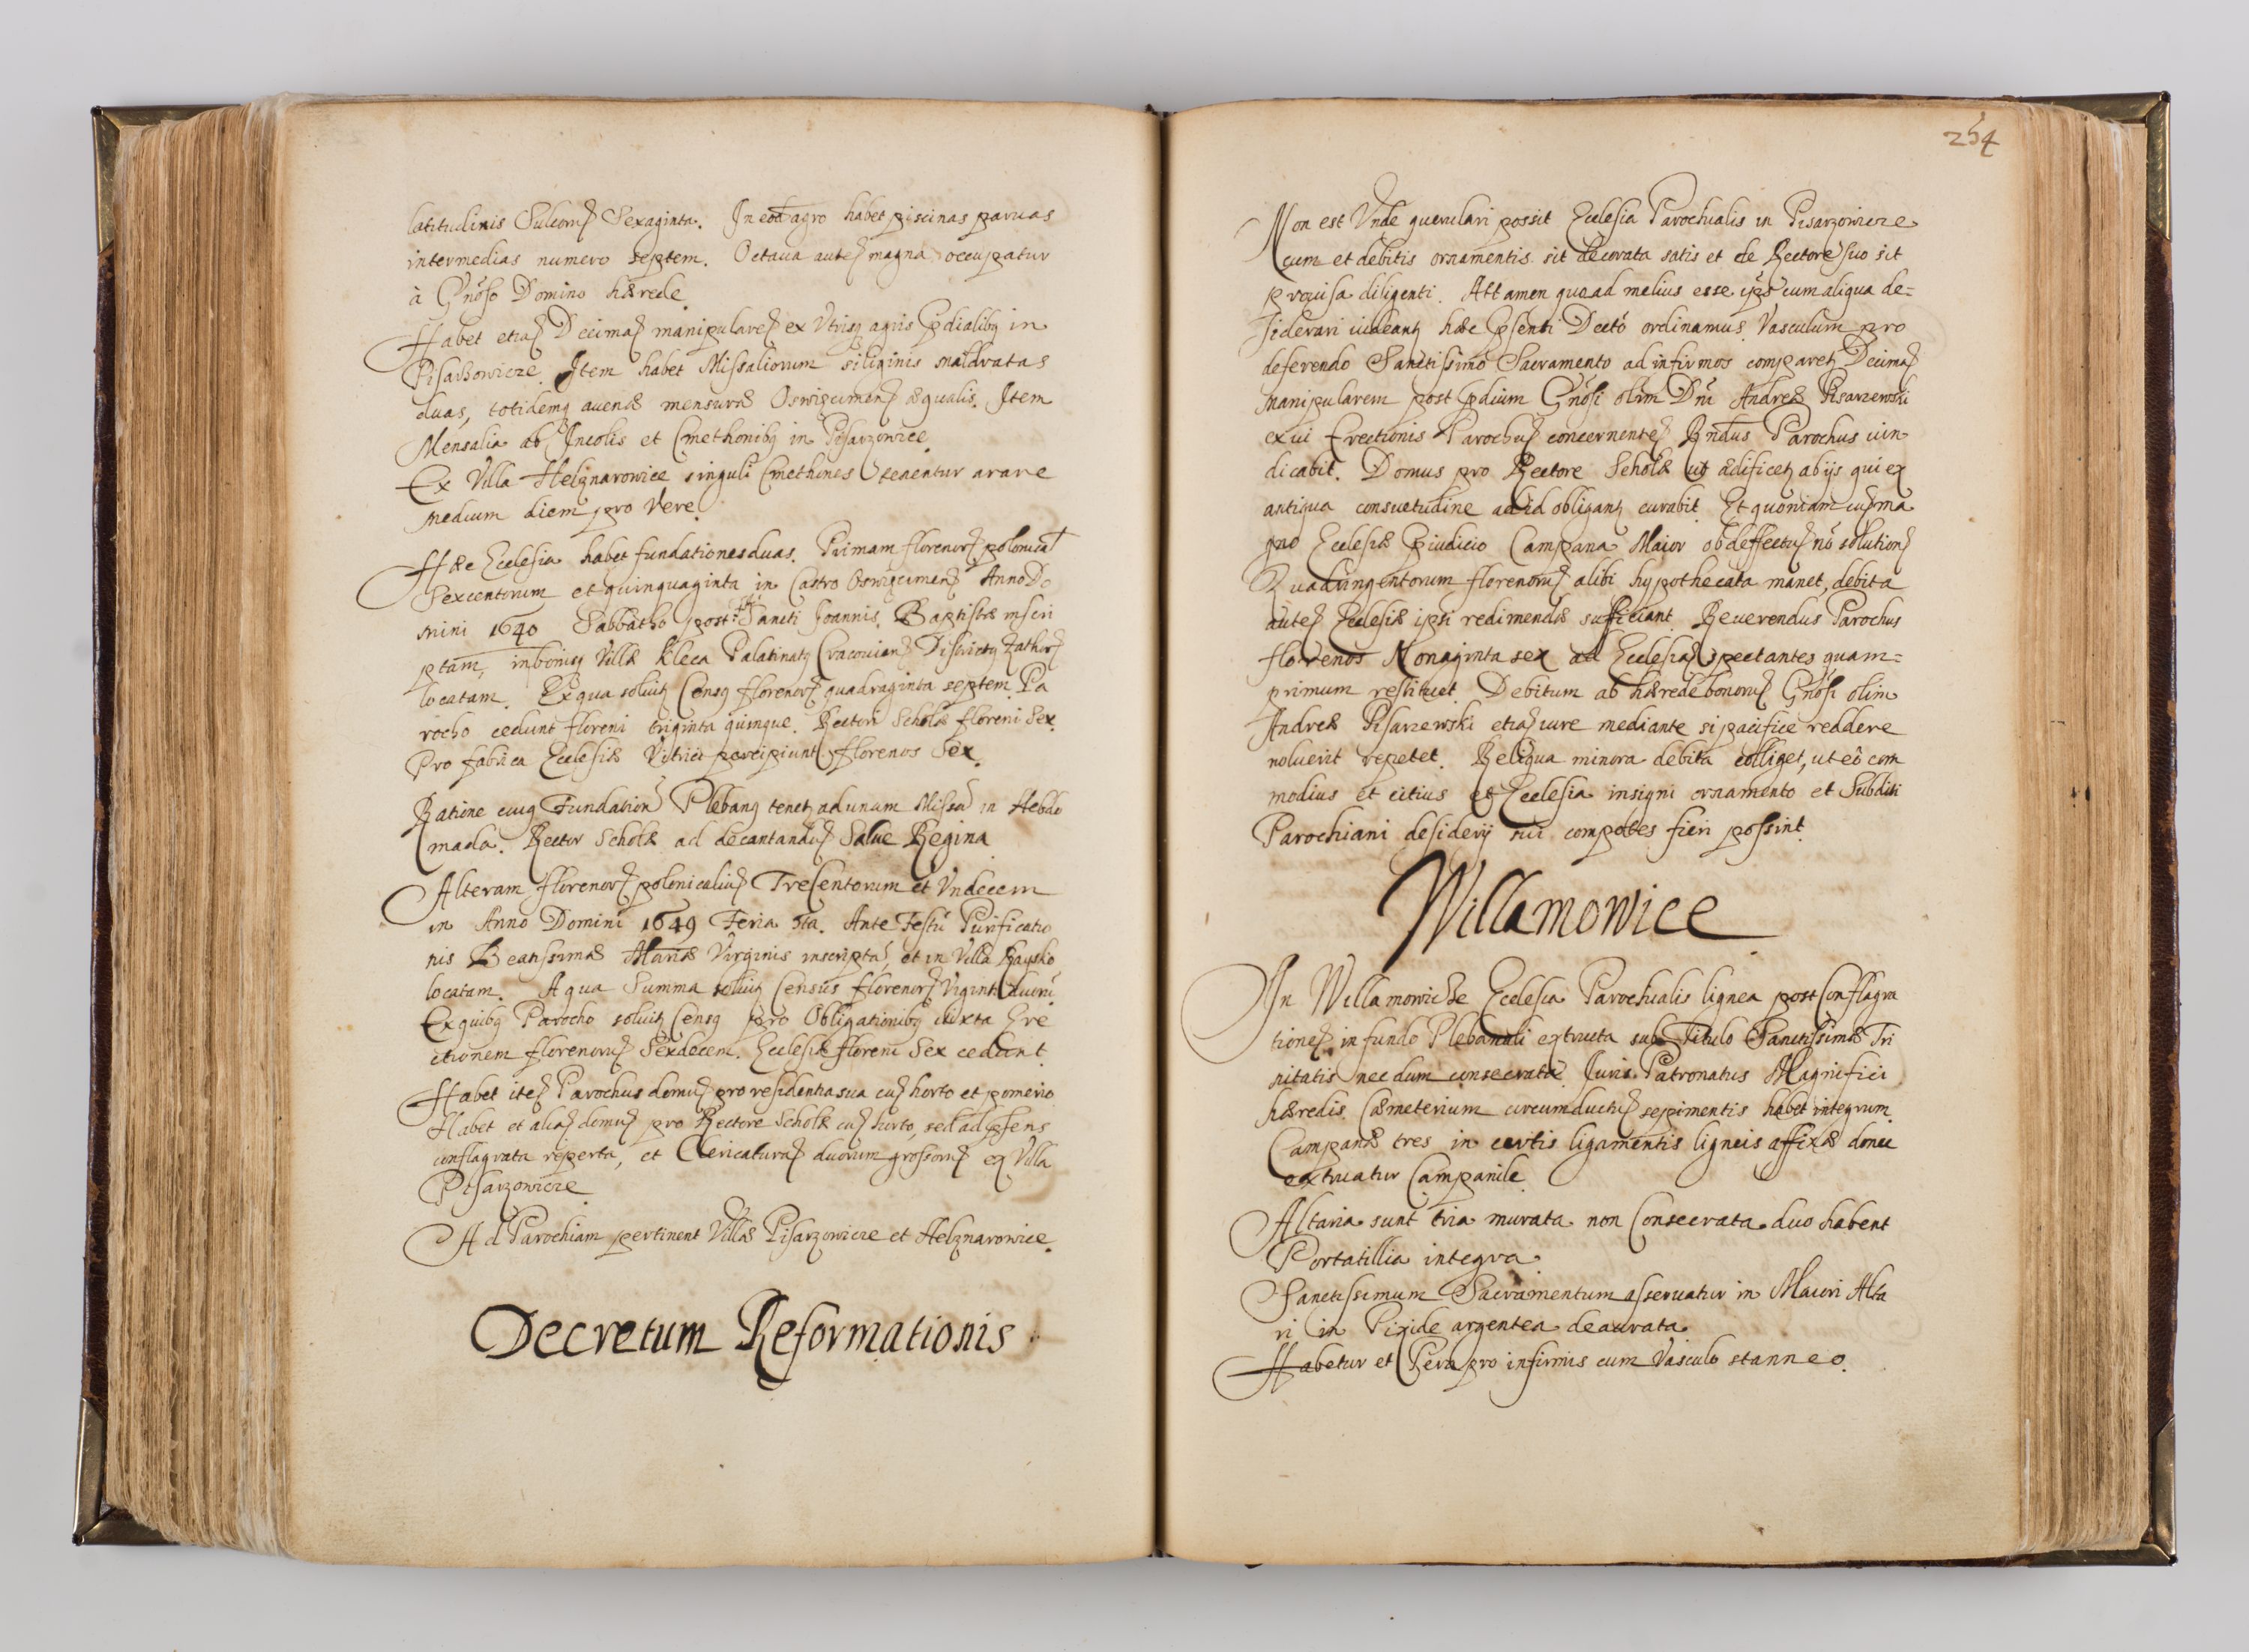 latitudinis Sulcorũ Sexaginta. In eod agro habet piscinas paruas
intermedias numero septem. Octaua autẽ magna occupatur
à Gnõso Domino hærede.
Habet etiã Decimã manipularẽ ex Vtrisq agris Pdialibq in
Pisarzowicze. Item habet Missaliorum siliginis maldratas
duas, totidemq auenæ mensuræ Oswięcimen æqualis. Item
Mensalia ab Incolis et Cmethonibq in Pisarzowice.
Ex Villa Helznarowice singuli Cmethines tenentur arare
medium diem pro Vere.
Hæc Ecclesia habet fundationes duas. Primam florenorũ polonical
Sexcentorum et quinquaginta in Castro Oswięcimen Anno Do
mini 1640 Sabbatho post Sancti Joannis Baptistæ inscri
ptam, in bonisq Villæ Kleca Palatinatq Cracouien Districtq Zathorẽ
locatam. Ex qua soluitq Censq florenorũ quadraginta septem. Pa
rocho cedunt floreni triginta quinque. Rectori Scholæ floreni Sex.
Pro fabrica Ecclesiæ Vitrici percipiunt florenos Sex.
Ratione cuiq Fundation Plebanq tenetq ad unam Missã in Hebdo
mada. Rector Scholæ ad decantandũ Salue Regina
Alteram florenorũ polonicaliũ Trecentorum et Vndecem
in Anno Domini 1649 Feria 5ta. Ante Festũ Purificatio
nis Beatissimæ Mariæ Virginis inscriptã, et in Villa Raysko
locatam. A qua Summa soluitq Census florenorũ Viginti duorũ.
Ex quibq Parocho soluitq Censq pro Obligationibq iuxta Ere
ctionem florenorũ Sexdecem. Ecclesiæ floreni Sex cedunt.
Habet itẽ Parochus domũ pro residentia sua cũ horto et pomerio
Habet et aliã domũ pro Rectore Scholæ cũ horto, sed ad psens
conflagrata reperta, et Clericaturã duorum grossorũ ex Villa
Pisarzowicze.
Ad Parochiam pertinent Villæ Pisarzowicze et Helznarowice.
Decretum Reformationis
254
Non est Vnde querulari possit Ecclesia Parochialis in Pisarzowicze
cum et debitis ornamentis sit decorata satis et de Rectore suo sit
prouisa diligenti. Attamen quoad melius esse ipsõ cum aliqua de=
siderari uideantq hæc Psenti Dectõ ordinamus. Vasculum pro
deferendo Sanctissimo Sacramento ad infirmos comparetq Decimã
manipularem post Pdium Gnõsi olim Dnĩ Andreæ Pisarzewski
ex ui Erectionis Parochũ concernentẽ Rndus Parochus uin
dicabit. Domus pro Rectore Scholæ ut ædificetq ab ijs qui ex
antiqua consuetudine ad id obligantq curabit. Et quoniam cũ ma
gno Ecclesiæ Piudicio Campana Maior ob deffectũ nõ solution
Quadringentorum florenorũ alibi hypothecata manet, debita
autẽ Ecclesiæ ipsi redimendæ sufficiant. Reuerendus Parochus
florenos Nonaginta sex ad Ecclesiã spectantes quam=
primum restituet. Debitum ab hærede bonorũ Gnõsi olim
Andreæ Pisarzewski etiã iure mediante si pacifice reddere
noluerit repetet. Reliqua minora debita colliget, ut eò com
modius et citius et Ecclesia insigni ornamento et Subditi
Parochiani desiderij sui compotes fieri possint.
Willamowice
In Willamowicze Ecclesia Parochialis lignea post Conflagra
tionẽ in fundo Plebanali extructa sub Titulo Sanctissimæ Tri
nitatis necdum consecrata. Juris Patronatus Magnifici
hæredis. Cæmeterium circumductũ sepimentis habet integrum.
Campanæ tres in certis ligamentis ligneis affixæ donec
extruatur Campanile.
Altaria sunt tria murata non Consecrata duo habent
Portatillia integra.
Sanctissimum Sacramentum asseruatur in Maiori Alta
ri in Pixide argentea deaurata.
Habetur et Pera pro infirmis cum Vasculo stanneo.